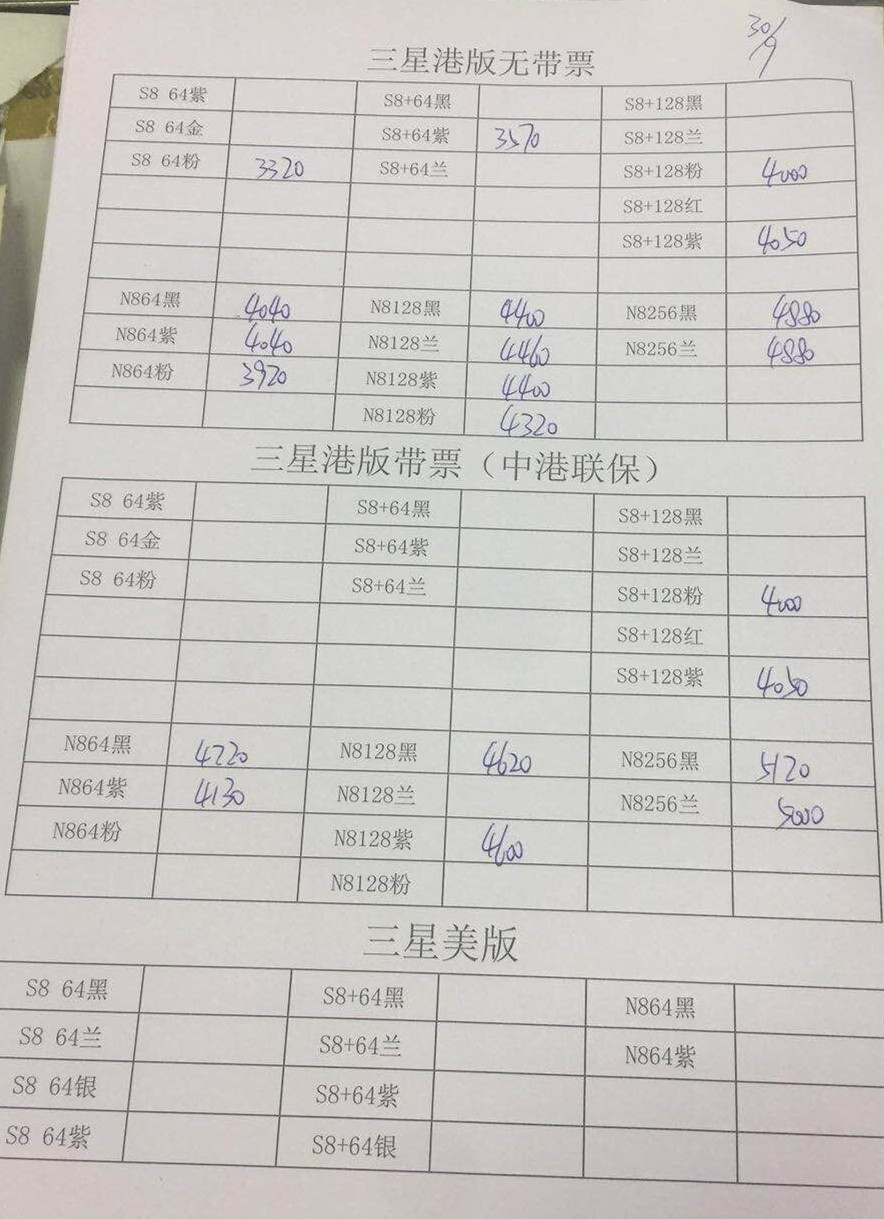 30/9
三星港版无带票
S8 64紫 S8+64黑 S8+128黑
S8 64金 S8+64紫 3570 S8+128兰
S8 64粉 3320 S8+64兰 S8+128粉 4000
S8+128红
S8+128紫 4050
N864黑 4040 N8128黑 4400 N8256黑 4880
N864紫 4040 N8128兰 4460 N8256兰 4880
N864粉 3920 N8128紫 4400
N8128粉 4320
三星港版带票（中港联保）
S8 64紫 S8+64黑 S8+128黑
S8 64金 S8+64紫 S8+128兰
S8 64粉 S8+64兰 S8+128粉 4000
S8+128红
S8+128紫 4050
N864黑 4220 N8128黑 4620 N8256黑 5120
N864紫 4130 N8128兰 N8256兰 5000
N864粉 N8128紫 4600
N8128粉
三星美版
S8 64黑 S8+64黑 N864黑
S8 64兰 S8+64兰 N864紫
S8 64银 S8+64紫
S8 64紫 S8+64银